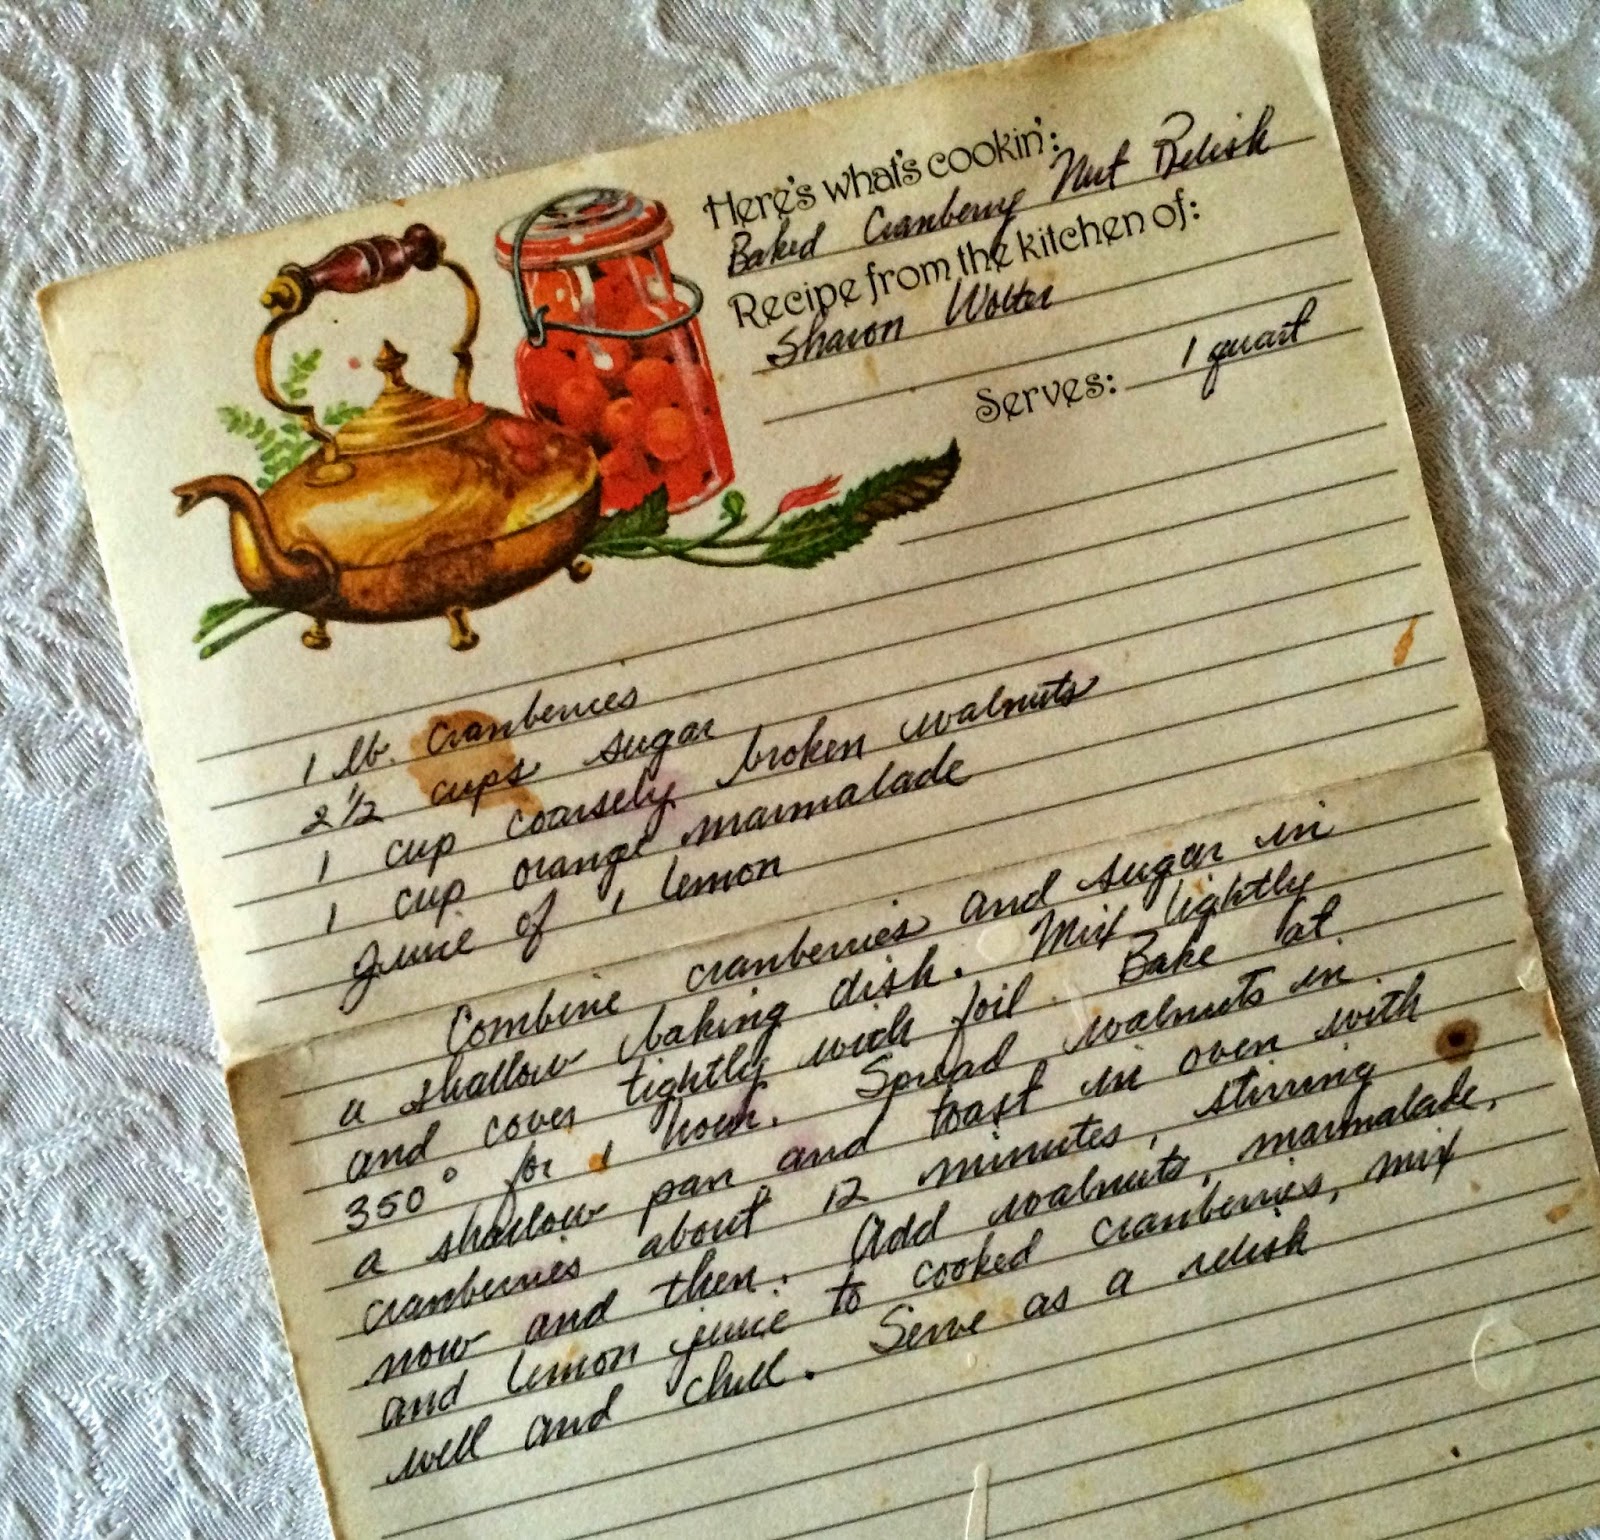 Here's what's cookin':
Baked Cranberry Nut Relish
Recipe from the kitchen of:
Sharon Wolter
Serves: 1 quart
1 lb. cranberries
2 1/2 cups sugar
1 cup coarsely broken walnuts
1 cup orange marmalade
Juice of 1 lemon
Combine cranberries and sugar in
a shallow baking dish. Mix lightly
and cover tightly with foil. Bake at
350° for 1 hour. Spread walnuts in
a shallow pan and toast in oven with
cranberries about 12 minutes, stirring
now and then. Add walnuts, marmalade,
and lemon juice to cooked cranberries, mix
well and chill. Serve as a relish